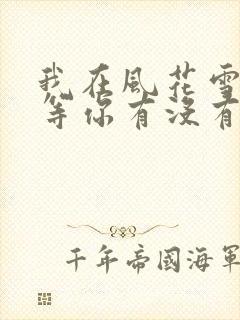 我在風花雪
等你有沒有
千年帝國海軍